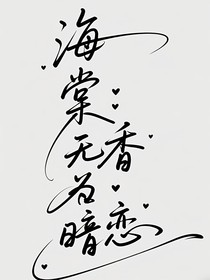 海
棠
无香
暗恋